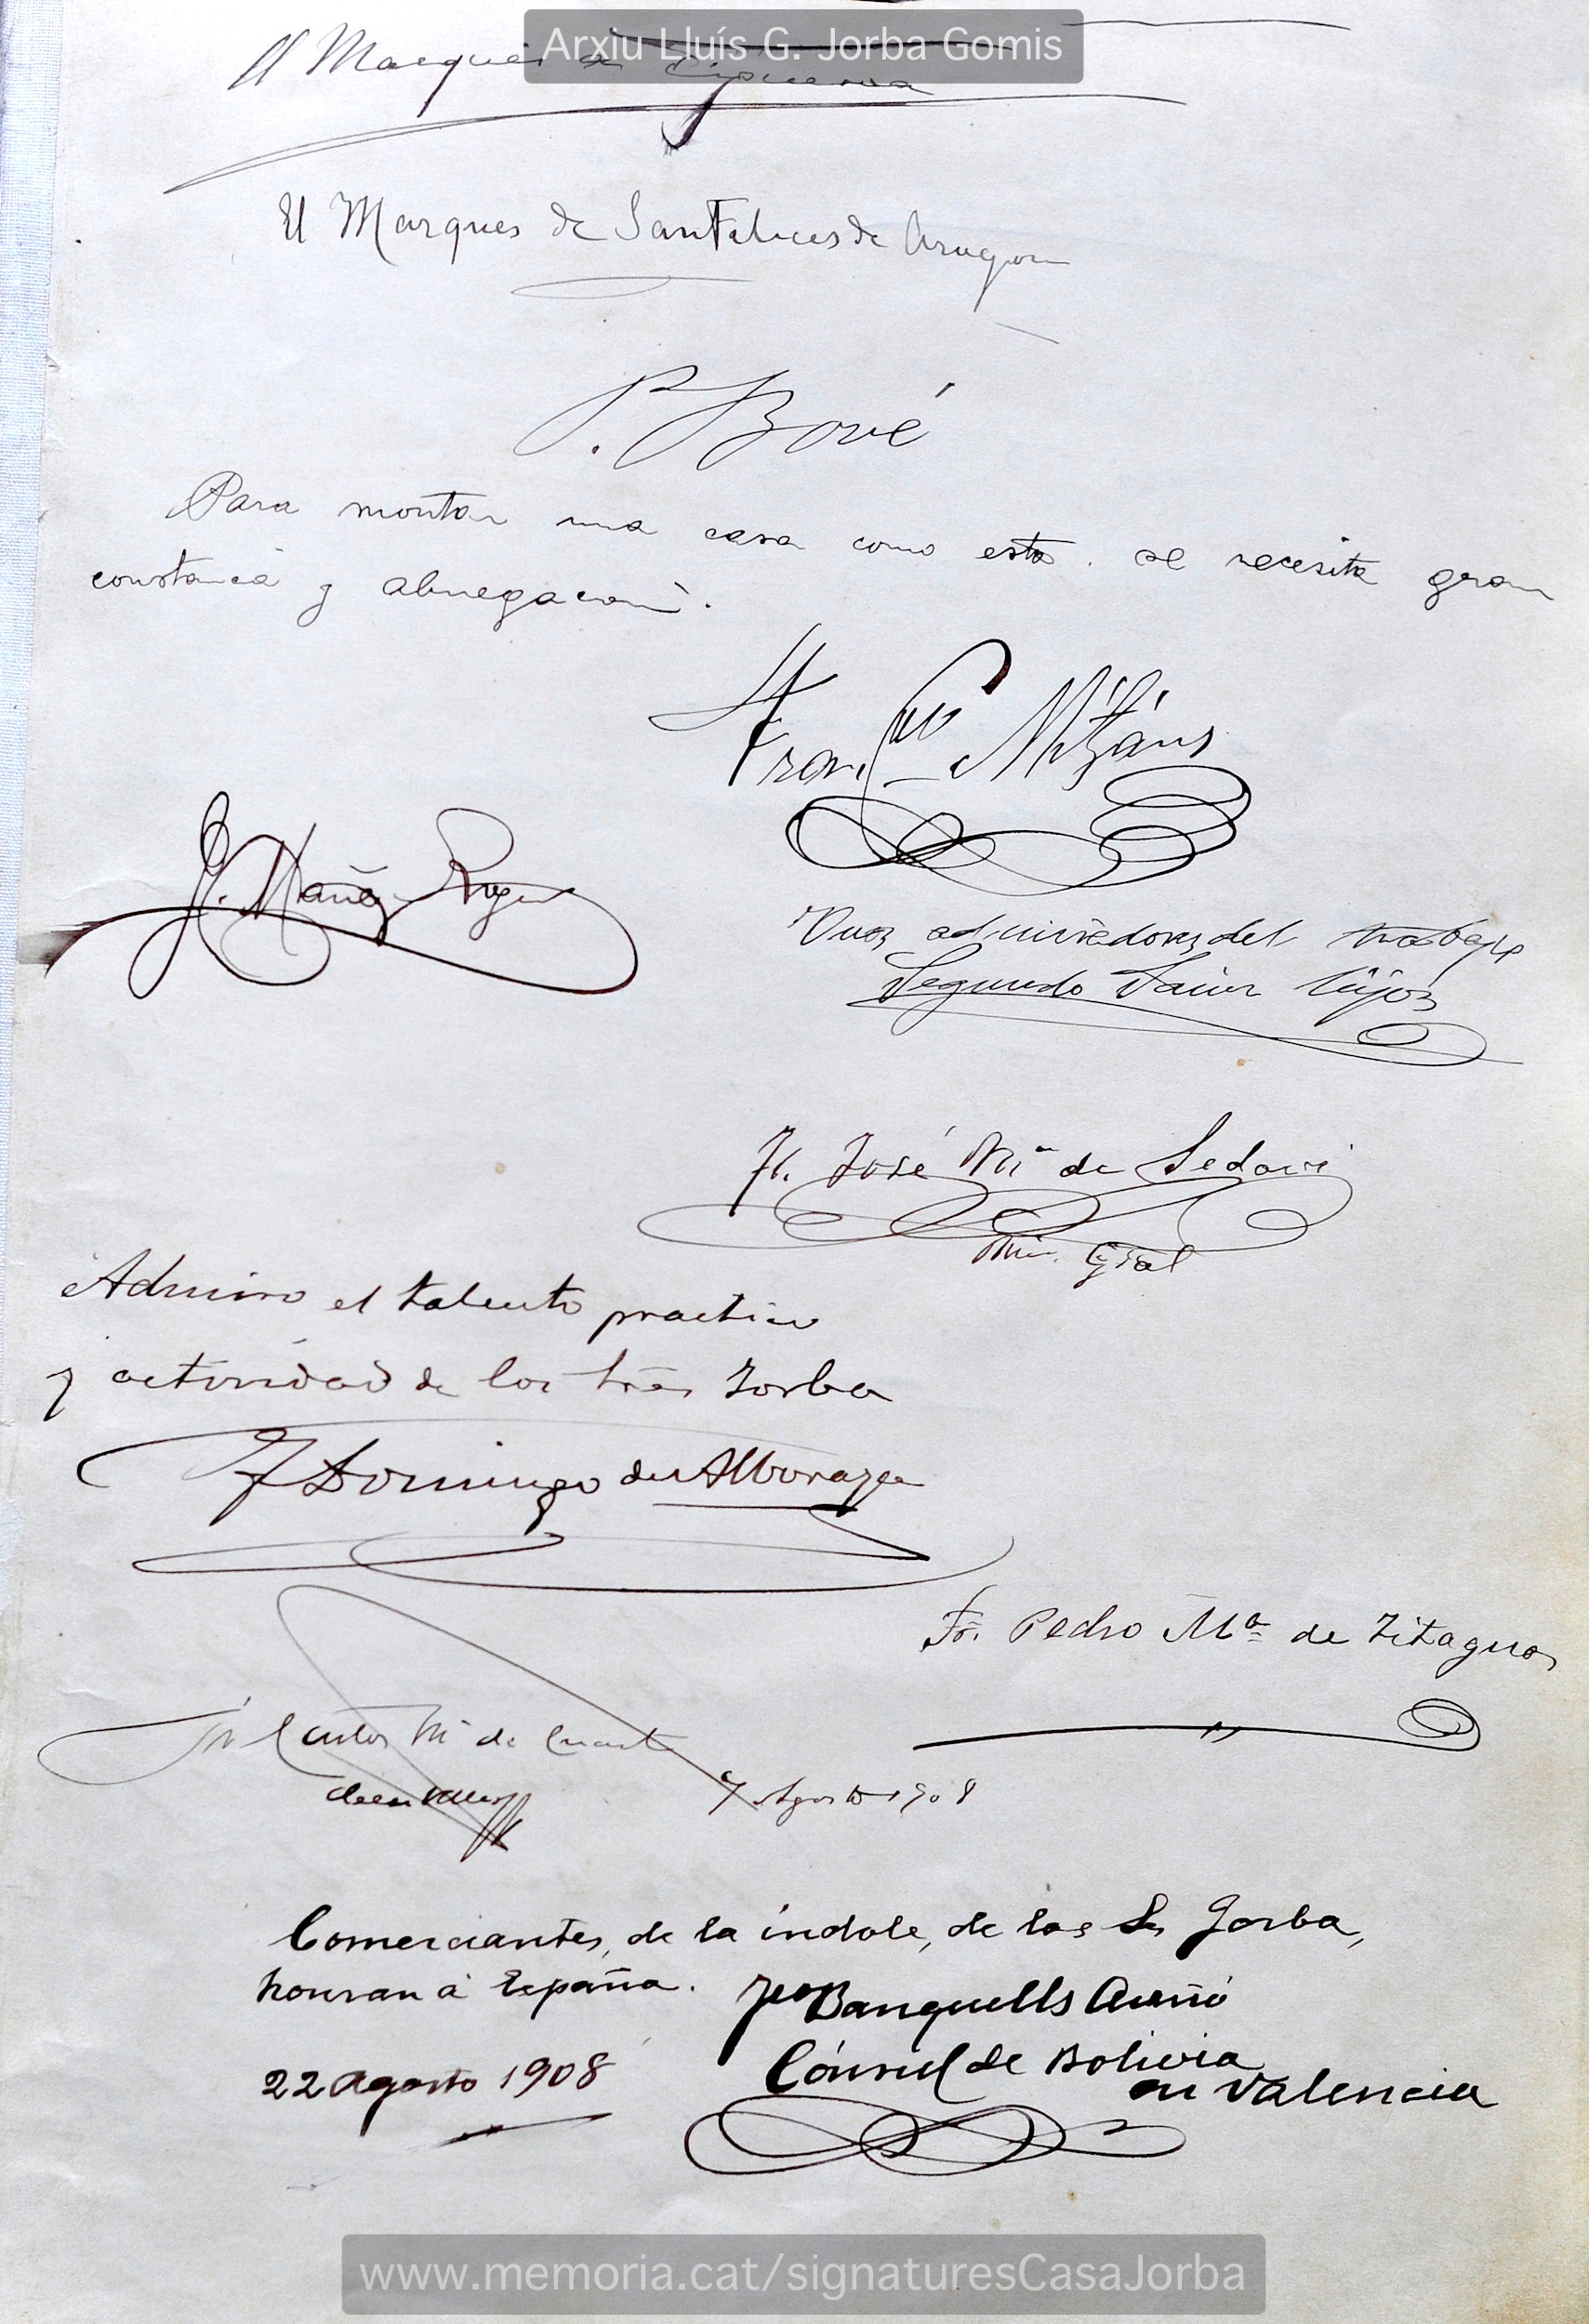 Arxiu Lluís G. Jorba Gomis
El Marqués de
El Marques de Santafelices de Aragon
P. Bové
Para montar una casa como esta se necesita gran
constancia y abnegacion.
Fran.co Mitjáns
J. Mañez Roger
admiradores del trabajo
Segundo
Fr. José Mª de Sedaví
Min. Gral
Admiro el talento practico
y actividad de los tres Jorba
F Domingo de Alboraya
Fr. Pedro Mª de Titaguas
Fr Carlos Mª de Cuart
7 Agosto 1908
Comerciantes, de la indole, de los Srs Jorba,
honran á España.
Banquells
Cónsul de Bolivia
en Valencia
22 Agosto 1908
www.memoria.cat/signaturesCasaJorba